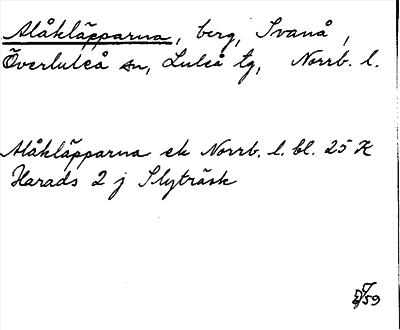 Alåkläpparna, berg, Svanå,
Överluleå sn, Luleå tg, Norrb. l.
Alåkläpparna ek Norrb. l. bl. 25 K
Harads 2 j Slyträsk
59